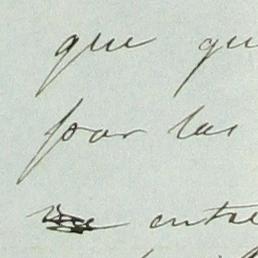 que qu
por las
entre